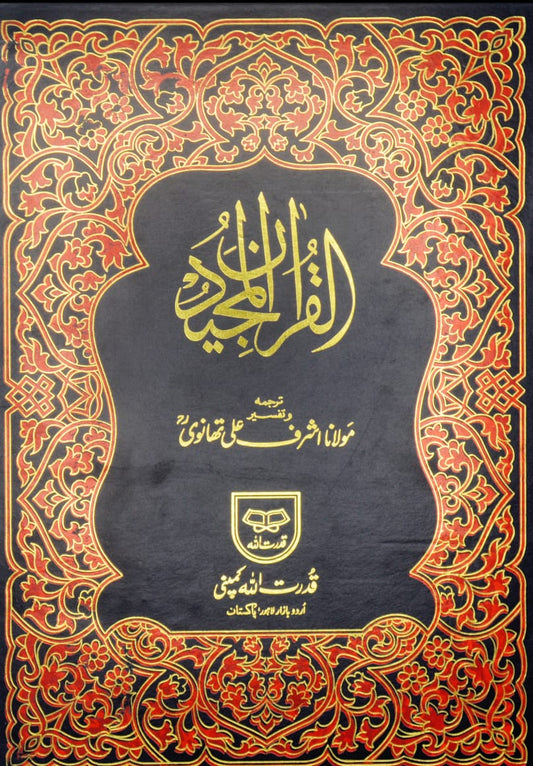 القرآن المجيد
ترجمہ
و تفسیر
مولانا اشرف علی تھانوی رح
قدرت اللہ
قُدرت اللہ کمپنی
اُردو بازار لاہور، پاکستان